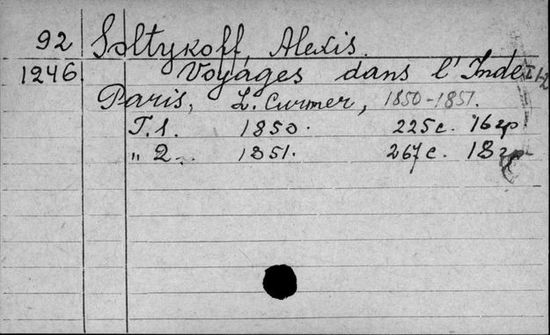 92 Soltykoff, Alexis.
1246. Voyages dans l'Inde I-2
Paris, L. Curmer, 1850-1851.
T.1. 1850. 225c. 16 гр
„ 2 1851. 267c. 18 гр